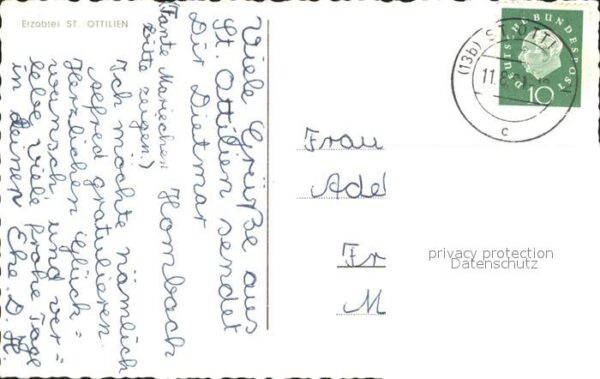 Erzabtei ST. OTTILIEN
Viele Grüße aus
St. Ottilien sendet
Dir Dietmar
Hombach
(Tante Mariechen
bitte zeigen.)
Ich möchte nämlich
Alfred gratulieren.
Herzlichen Glück=
wunsch und ver=
lebe viele frohe Tage
in deinen Ehe. D. H
(13b) ST. OTTI
11.
c
DEUTSCHE BUNDESPOST
10
Frau
Add
Fr
M
privacy protection
Datenschutz